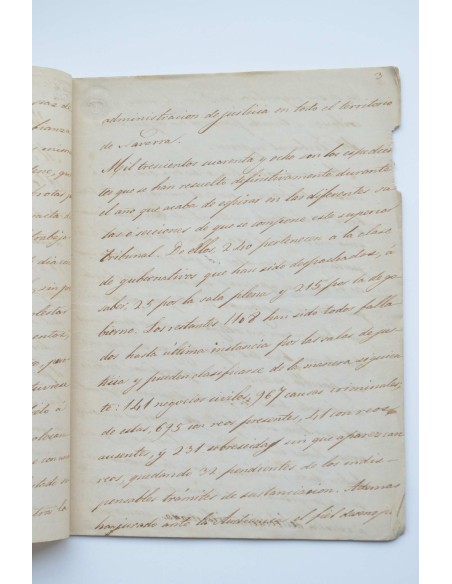 3
administracion de justicia en todo el territorio
de Navarra.
Mil trescientos cuarenta y ocho son los espedien
tes que se han resuelto definitivamente durante
el año que acaba de espirar en las diferentes sa
las ó secciones de que se compone este superior
tribunal. De ellos, 240 pertenecen a la clase
de gubernativos que han sido despachados, á
saber: 25 por la sala plena y 215 por la de go
bierno. Los restantes 1108 han sido todos falla
dos hasta última instancia por las salas de jus
ticia y pueden clasificarse de la manera siguien
te: 141 negocios civiles, 967 causas criminales,
de estas, 695 con reos presentes, 41 con reos
ausentes, y 231 sobreseidas en que aparezcan
reos, quedando 32 pendientes de los indis-
pensables trámites de sustanciacion. Ademas
han jurado ante la el fiel desempe